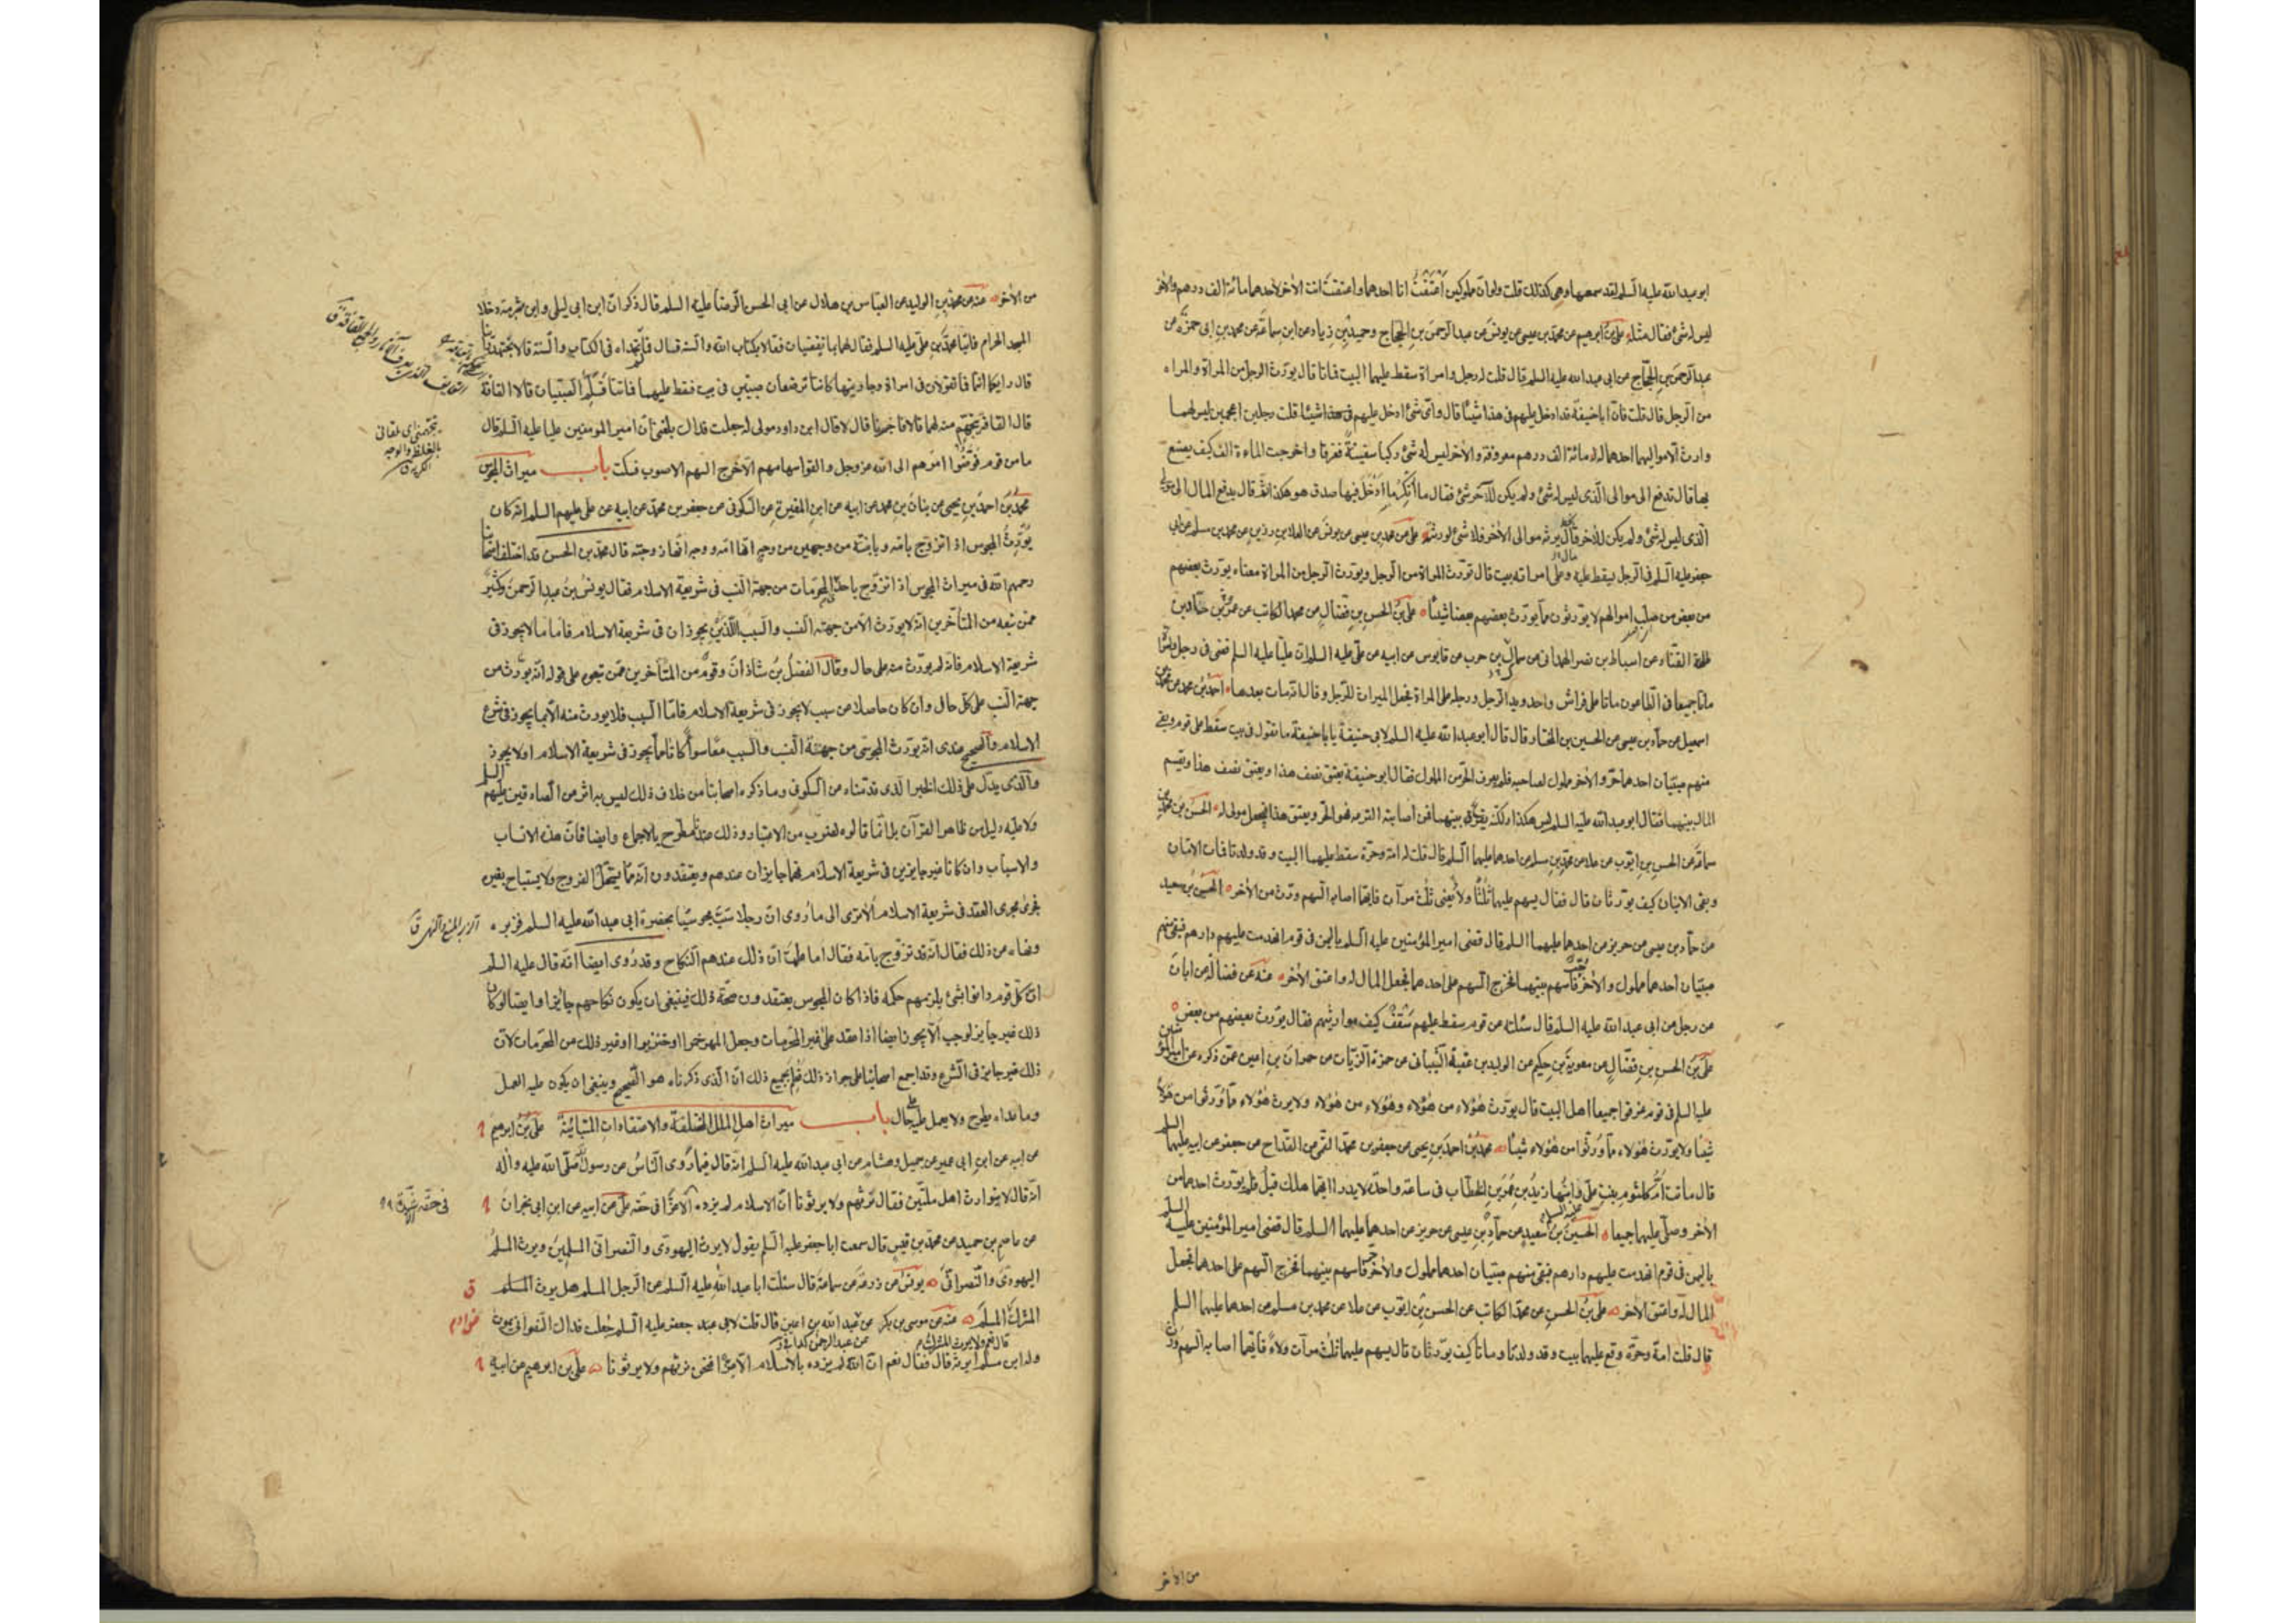 ابو عبد الله عليه السلم لقد سمعها وهي كذلك قلت ولو ان مملوكين أعتقتُ انا احدهما واعتقتَ انت الاخر لاحدهما مائة الف درهم والاخر
ليس له شئ فقال مثله علي بن ابرهيم عن محمد بن عيسى عن يونس عن عبد الرحمن بن الحجاج وحميد بن زياد عن ابن سماعة عن محمد بن ابي حمزة عن
عبد الرحمن بن الحجاج عن ابي عبد الله عليه السلم قال قلت له رجل وامراة سقط عليهما البيت فماتا قال يورث الرجل من المراة والمراه
من الرجل قال قلت فان ابا حنيفة قد ادخل عليهم في هذا شيئا قال واي شئ ادخل عليهم في هذا شيئا قلت رجلين اعجميين ليس لهما
وارث الا مواليهما احدهما له مائة الف درهم معروفة والاخر ليس له شئ ركبا سفينة فغرقا واخرجت الماءة الف كيف يصنع
بها قال تدفع الى موالي الذي ليس له شئ ولم يكن للآخر شئ فقال ما أنكر ما ادخل فيها صدق هو هكذا ثم قال يدفع المال الى مولى
الذي ليس له شئ ولم يكن للاخر مال يرثه موالى الاخر فلا شئ لورثته علي عن محمد بن عيسى عن يونس عن العلا بن رزين عن محمد بن مسلم عن ابي
جعفر عليه السلم في الرجل يسقط عليه وعلى امراته بيت قال تورث المراة من الرجل ويورث الرجل من المراة معناه يورث بعضهم
من بعض من صلب اموالهم لا يورثون مما يورث بعضهم بعضا شيئا علي بن الحسن بن فضال عن محمد الكاتب عن عمرو بن حماد بن
طلحة القناد عن اسباط بن نصر الهمداني عن سماك بن حرب عن قابوس عن ابيه عن علي عليه السلم ان عليا عليه السلم قضى في رجل وامراة
ماتا جميعا في الطاعون ماتا على فراش واحد ويد الرجل ورجله على المراة فجعل الميراث للرجل وقال انه مات بعدها احمد بن محمد عن محمد بن
اسمعيل عن حماد بن عيسى عن الحسين بن المختار قال قال ابو عبد الله عليه السلم لابي حنيفة يا با حنيفة ما تقول في بيت سقط على قوم وبقي
منهم صبيان احدهما حر والاخر مملوك لصاحبه فلم يعرف الحر من المملوك فقال ابو حنيفة يعتق نصف هذا ويعتق نصف هذا ويقسم
المال بينهما فقال ابو عبد الله عليه السلم ليس هكذا ولكنه يقرع بينهما فمن اصابته القرعه فهو الحر ويعتق هذا فيجعل مولى له الحسن بن محمد بن
سماعة عن الحسن بن ايوب عن علا عن محمد بن مسلم عن احدهما عليهما السلم قال قلت له امة وحرة سقط عليهما البيت وقد ولدتا فماتت الامان
وبقي الابنان كيف يورثان قال فقال يسهم عليهما ثلثا ولاء يعني ثلث مرات فايهما اصابه السهم ورث من الاخر الحسين بن سعيد
عن حماد بن عيسى عن حريز عن احدهما عليهما السلم قال قضى امير المؤمنين عليه السلم باليمن في قوم انهدمت عليهم دارهم فبقي منهم
صبيان احدهما مملوك والاخر حر فاسهم بينهما فخرج السهم على احدهما فجعل المال له واعتق الاخر عنه عن فضالة عن ابان
عن رجل عن ابي عبد الله عليه السلم قال سئلته عن قوم سقط عليهم سقف كيف مواريثهم فقال يورث بعضهم من بعض
علي بن الحسن بن فضال عن معوية بن حكيم عن الوليد بن عقبة الشيباني عن حمزة الزيات عن حمران بن اعين عمن ذكره عن امير المؤمنين
عليه السلم في قوم غرقوا جميعا اهل البيت قال يورث هؤلاء من هؤلاء وهؤلاء من هؤلاء ولا يرث هؤلاء مما ورثوا من هؤلاء
شيئا ولا يورث هؤلاء مما ورثوا من هؤلاء شيئا محمد بن احمد بن يحيى عن جعفر بن محمد القمي عن القداح عن جعفر عن ابيه عليهما السلم
قال ماتت ام كلثوم بنت علي وابنها زيد بن عمر بن الخطاب في ساعة واحدة لا يدرا ايهما هلك قبل فلم يورث احدهما من
الاخر وصلى عليهما جميعا الحسين بن سعيد عن حماد بن عيسى عن حريز عن احدهما عليهما السلم قال قضى امير المؤمنين عليه السلم
باليمن في قوم انهدمت عليهم دارهم فبقي منهم صبيان احدهما مملوك والاخر حر فاسهم بينهما فخرج السهم على احدهما فجعل
المال له واعتق الاخر علي بن الحسن عن محمد الكاتب عن الحسن بن ايوب عن علا عن محمد بن مسلم عن احدهما عليهما السلم
قال قلت امة وحرة وقع عليهما بيت وقد ولدتا وماتا كيف يورثان قال يسهم عليهما ثلث مرات ولاء فايهما اصابه السهم ورث
من الاخر
من الاخر عنه عن محمد بن الوليد عن العباس بن هلال عن ابي الحسن الرضا عليه السلم قال ذكر ان ابن ابي ليلى وابن شبرمة دخلا
المسجد الحرام فاتيا محمد بن علي عليه السلم فقال لهما بما تقضيان فقالا بكتاب الله والسنة قال فما لم تجداه في الكتاب والسنة قالا نجتهد راينا
قال رايكما انتما فما تقولان في امراة وجاريتها كانتا ترضعان صبيين في بيت فسقط عليهما فماتتا وسلم الصبيان قالا القافة
قال القافة يتجهم منه لهما قالا فاخبرنا قال لا قال ابن داود مولى له جعلت فداك بلغني ان امير المؤمنين عليا عليه السلم قال
ما من قوم فوضوا امرهم الى الله عز وجل والقوا سهامهم الا خرج السهم الاصوب فسكت باب ميراث المجوس
محمد بن احمد بن يحيى عن بنان بن محمد عن ابيه عن ابن المغيرة عن السكوني عن جعفر بن محمد عن ابيه عن علي عليهم السلم انه كان
يورث المجوس اذا تزوج بامه وبابنته من وجهين من وجه انها امه ووجه انها زوجته قال محمد بن الحسن قد اختلف اصحابنا
رحمهم الله في ميراث المجوس اذا تزوج باحدى المحرمات من جهة النسب في شريعة الاسلام فقال يونس بن عبد الرحمن وكثير
ممن تبعه من المتأخرين انه لا يورث الا من جهة النسب والسبب اللذين يجوزان في شريعة الاسلام فاما ما لا يجوز في
شريعة الاسلام فانه لم يورث منه على حال وقال الفضل بن شاذان وقوم من المتأخرين ممن تبعوه على قوله انه يورث من
جهة النسب على كل حال وان كان حاصلا عن سبب لا يجوز في شريعة الاسلام فاما السبب فلا يورث منه الا بما يجوز في شرع
الاسلام والصحيح عندي انه يورث المجوسي من جهة النسب والسبب معا سواء كانا مما يجوز في شريعة الاسلام او لا يجوز
والذي يدل على ذلك الخبر الذي قدمناه عن السكوني وما ذكره اصحابنا من خلاف ذلك ليس به اثر من الصادقين عليهم السلم
ولا عليه دليل من ظاهر القرآن بل انما قالوه لضرب من الاعتبار وذلك عندنا مطرح بالاجماع وايضا فان هذه الانساب
والاسباب وان كانا غير جايزين في شريعة الاسلام فهما جايزان عندهم ويعتقدون انه مما يستحل الفروج ولا يستباح بغيره
فجرى مجرى العقد في شريعة الاسلام ألا ترى الى ما روي ان رجلا سب مجوسيا بحضرة ابي عبد الله عليه السلم فزبره
ونهاه عن ذلك فقال انه قد تزوج بامه فقال اما علمت ان ذلك عندهم النكاح وقد روي ايضا انه قال عليه السلم
ان كل قوم دانوا بشئ يلزمهم حكمه فاذا كان المجوس يعتقدون صحة ذلك فينبغي ان يكون نكاحهم جايزا وايضا لو كان
ذلك غير جايز لوجب الا يجوز ايضا اذا عقد على غير المحرمات وجعل المهر خمرا او خنزيرا او غير ذلك من المحرمات لان
ذلك غير جايز في الشرع وقد اجمع اصحابنا على جواز ذلك فعلم بجميع ذلك ان الذي ذكرناه هو الصحيح وينبغي ان يكون عليه العمل
وما عداه يطرح ولا يعمل عليه على حال باب ميراث اهل الملل المختلفة والاعتقادات المتباينة علي بن ابرهيم
عن ابيه عن ابن ابي عمير عن جميل وهشام عن ابي عبد الله عليه السلم انه قال فيما روى الناس عن رسول الله صلى الله عليه واله
انه قال لا يتوارث اهل ملتين فقال نرثهم ولا يرثونا ان الاسلام لم يزده الا عزا في حقه علي عن ابيه عن ابن ابي نجران
عن عاصم بن حميد عن محمد بن قيس قال سمعت ابا جعفر عليه السلم يقول لا يرث اليهودي والنصراني المسلمين ويرث المسلم
اليهودي والنصراني يونس عن زرعة عن سماعة قال سئلت ابا عبد الله عليه السلم عن الرجل المسلم هل يرث المسلم
المشرك المسلم عنه عن موسى بن بكر عن عبد الله بن اعين قال قلت لابي عبد جعفر عليه السلم جعلت فداك النصراني يموت
قال نعم ولا يرث المشرك
عن عبد الرحمن
وله ابن مسلم ايرثه قال فقال نعم ان الله لم يزده بالاسلام الا عزا فنحن نرثهم ولا يرثونا علي بن ابرهيم عن ابيه